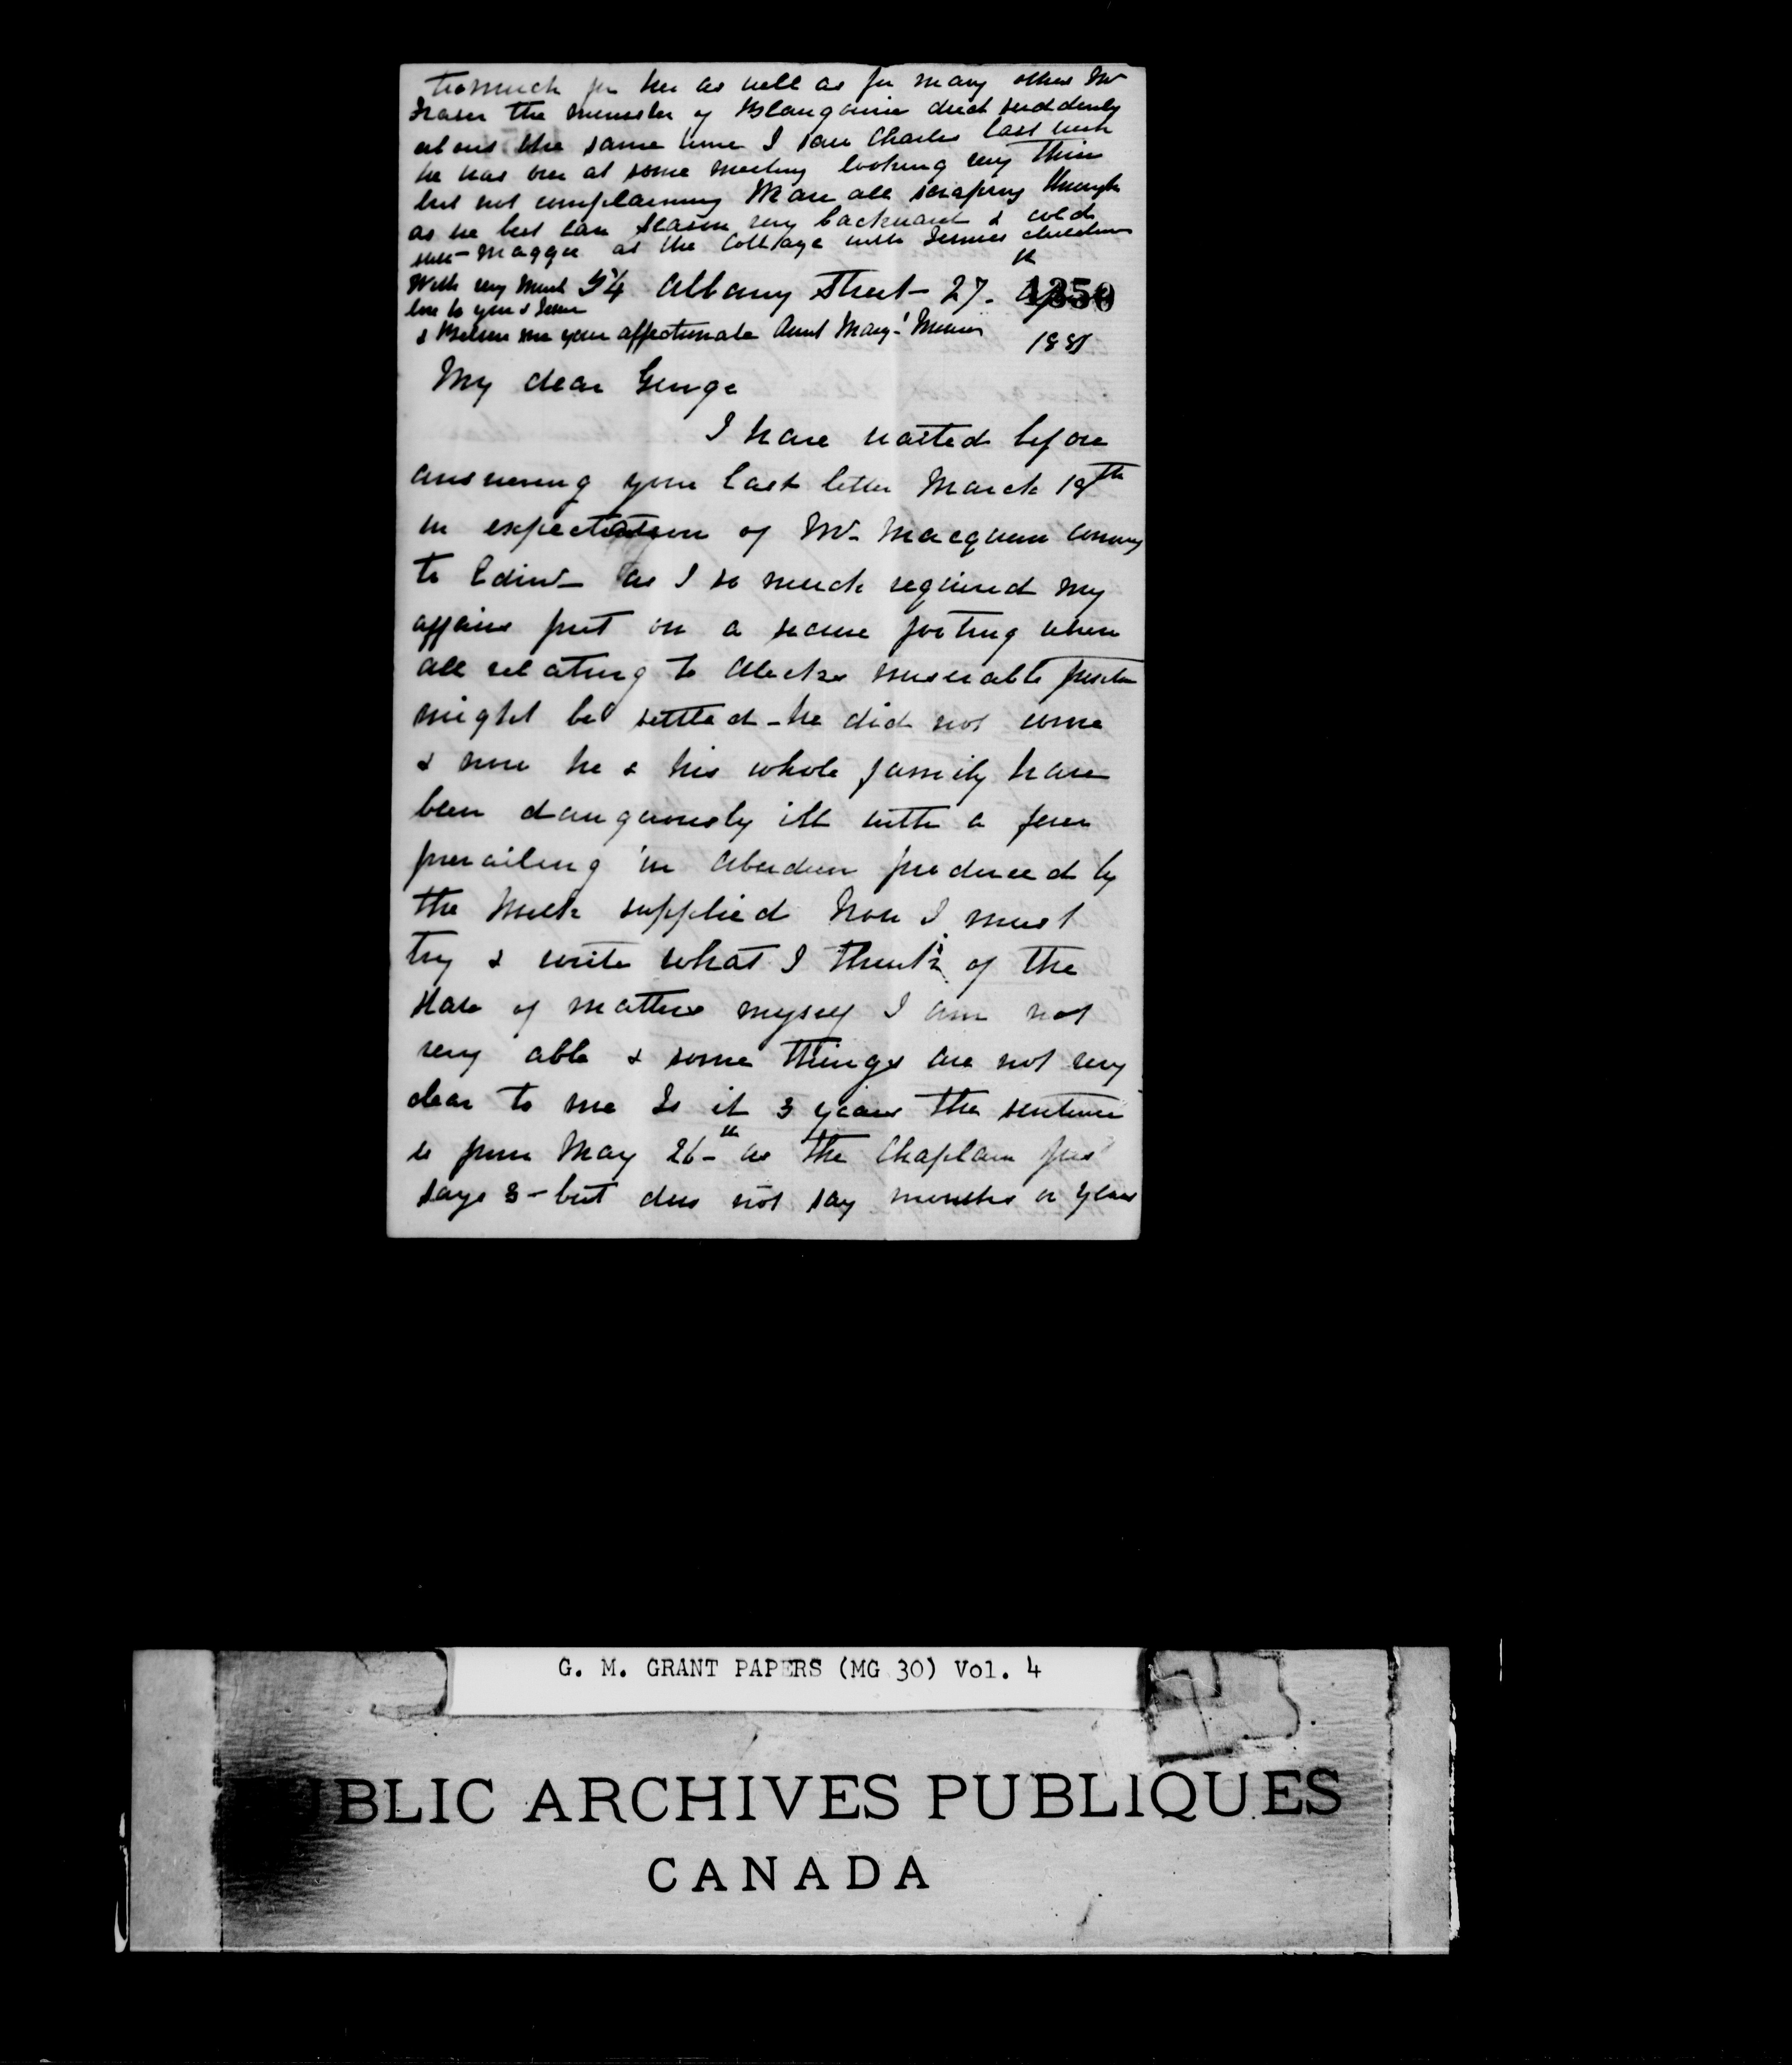 too much for her as well as for many others Mr
Fraser the minister of Blairgowrie died suddenly
about the same time I saw Charles last week
he was over at some meeting looking very thin
but not complaining We are all scraping through
as we best can Season very backward & cold
Maggie at the Cottage with Jessies children
With very much
love to you & Jessie
& Believe me your affectionate Aunt Mary
54 Albany Street - 27th
1350
1881
My dear George
I have waited before
answering your last letter March 18th
in expectation of Mr Macqueen coming
to Edinr as I so much required my
affairs put on a secure footing when
all relating to Alecks miserable
might be settled - he did not come
& now he & his whole family have
been dangerously ill with a fever
prevailing in Aberdeen produced by
the Milk supplied Now I must
try & write what I think of the
state of matters myself I am not
very able & some things are not very
clear to me Is it 3 years the sentence
is from May 26th as the Chaplain
says 3 - but does not say months or years
G. M. GRANT PAPERS (MG 30) Vol. 4
PUBLIC ARCHIVES PUBLIQUES
CANADA